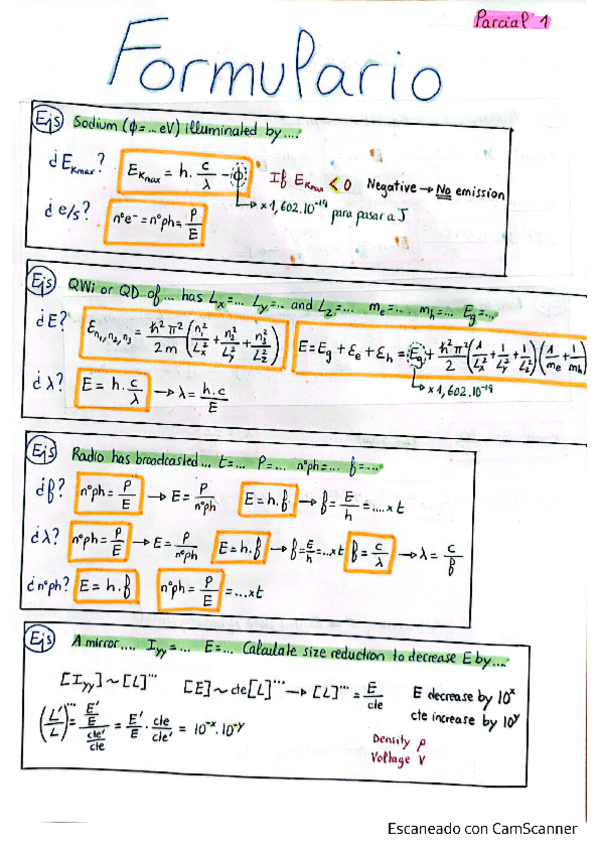 Parcial 1
Formulario
Ejs Sodium (ϕ=... eV) illuminated by....
¿E_Kmax? E_Kmax = h · c/λ − ϕ If E_Kmax < 0 Negative → No emission
→ x1,602·10^-19 para pasar a J
¿e/s? nºe⁻ = nºph = P/E
Ejs QWi or QD of... has Lx=... Ly=.. and Lz=... me=... mh=... Eg=...
¿E? Ɛ_n1,n2,n3 = ħ²π²/2m (n₁²/Lx² + n₂²/Ly² + n₃²/Lz²) E = Eg + Ɛe + Ɛh = Eg + ħ²π²/2 (1/Lx² + 1/Ly² + 1/Lz²)(1/me + 1/mh)
→ x1,602·10^-19
¿λ? E = h · c/λ → λ = h·c/E
Ejs Radio has broadcasted... t=... P=... nºph=... f=...
¿f? nºph = P/E → E = P/nºph E = h·f → f = E/h = ....x t
¿λ? nºph = P/E → E = P/nºph E = h·f → f = E/h = ...x t f = c/λ → λ = c/f
¿nºph? E = h·f nºph = P/E = ...x t
Ejs A mirror.... Iyy=... E=... Calculate size reduction to decrease E by....
[Iyy] ~ [L]^... [E] ~ cte[L]^... → [L]^... = E/cte E decrease by 10^x
cte increase by 10^y
(L'/L)^... = (E'/E)/(cte'/cte) = E'/E · cte/cte' = 10^-x · 10^-y
Density ρ
Voltage V
Escaneado con CamScanner